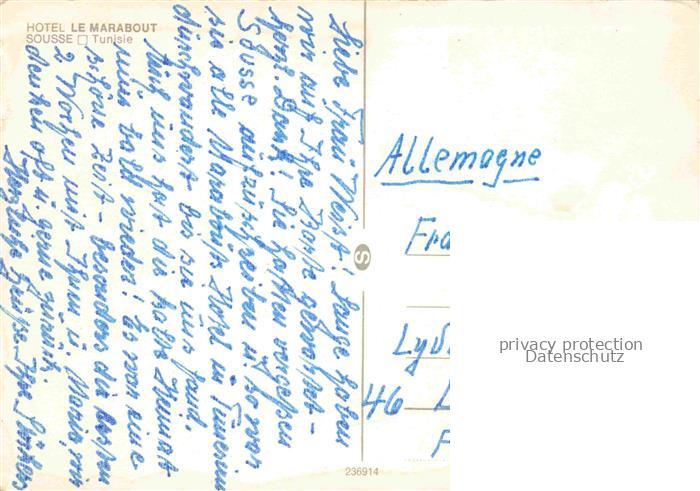 HOTEL LE MARABOUT
SOUSSE □ Tunisie
Liebe Frau Vogt! Lange haben
wir auf Ihre Karte gewartet -
herzl. Dank! Sie hatten vergessen
Sousse aufzuschreiben u. so war
sie alle Marabout Hotel in Tunesien
durchwandert bis sie uns fand.
Auch uns hat die kalte Heimat
nun bald wieder! Es war eine
schöne Zeit - besonders die letzten
2 Wochen mit Ihnen u. Maria, wir
denken oft u. gerne zurück.
Herzliche Grüße Ihre
Allemagne
Fra
Lyd
46 L
F
S
236914
privacy protection
Datenschutz